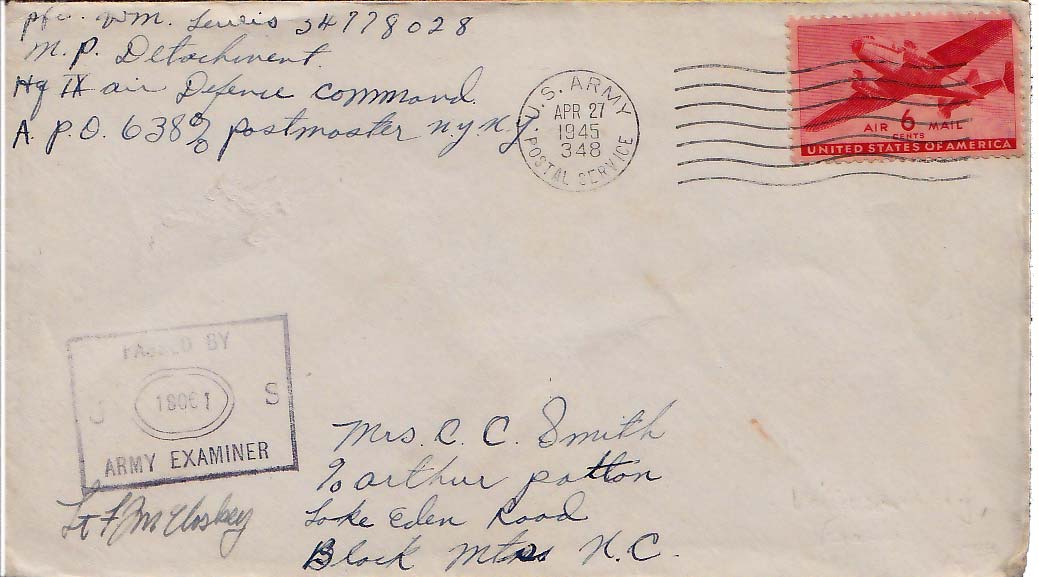 pfc. Wm. Lewis 34778028
M.P. Detachment.
Hq IX air Defense command.
A.P.O. 638 % postmaster n.y. N.Y.
U.S. ARMY
APR 27
1945
348
POSTAL SERVICE
AIR 6 MAIL
CENTS
UNITED STATES OF AMERICA
PASSED BY
U S
ARMY EXAMINER
Mrs. C. C. Smith
% arthur patton
Lake Eden Road
Black Mtns N.C.
Lt F J McCloskey